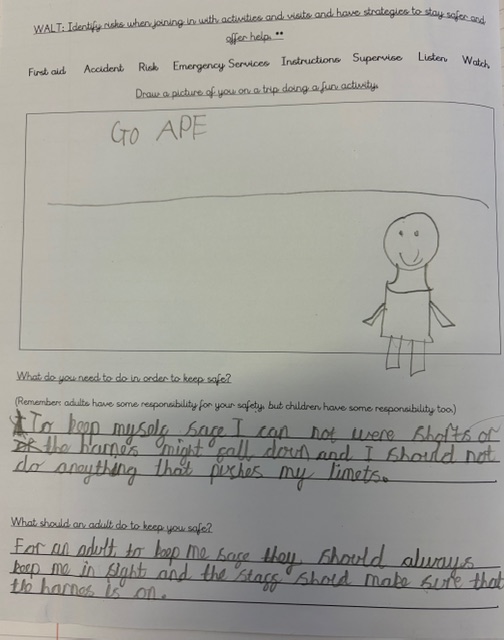 WALT: Identify risks when joining in with activities and visits and have strategies to stay safer and
offer help.
First aid Accident Risk Emergency Services Instructions Supervise Listen Watch
Draw a picture of you on a trip doing a fun activity.
GO APE
What do you need to do in order to keep safe?
(Remember: adults have some responsibility for your safety, but children have some responsibility too.)
To keep myself safe I can not were shofts or
the harnes might fall down and I should not
do anything that pushes my limets.
What should an adult do to keep you safe?
For an adult to keep me safe they should always
keep me in sight and the staff should make sure that
the harnes is on.